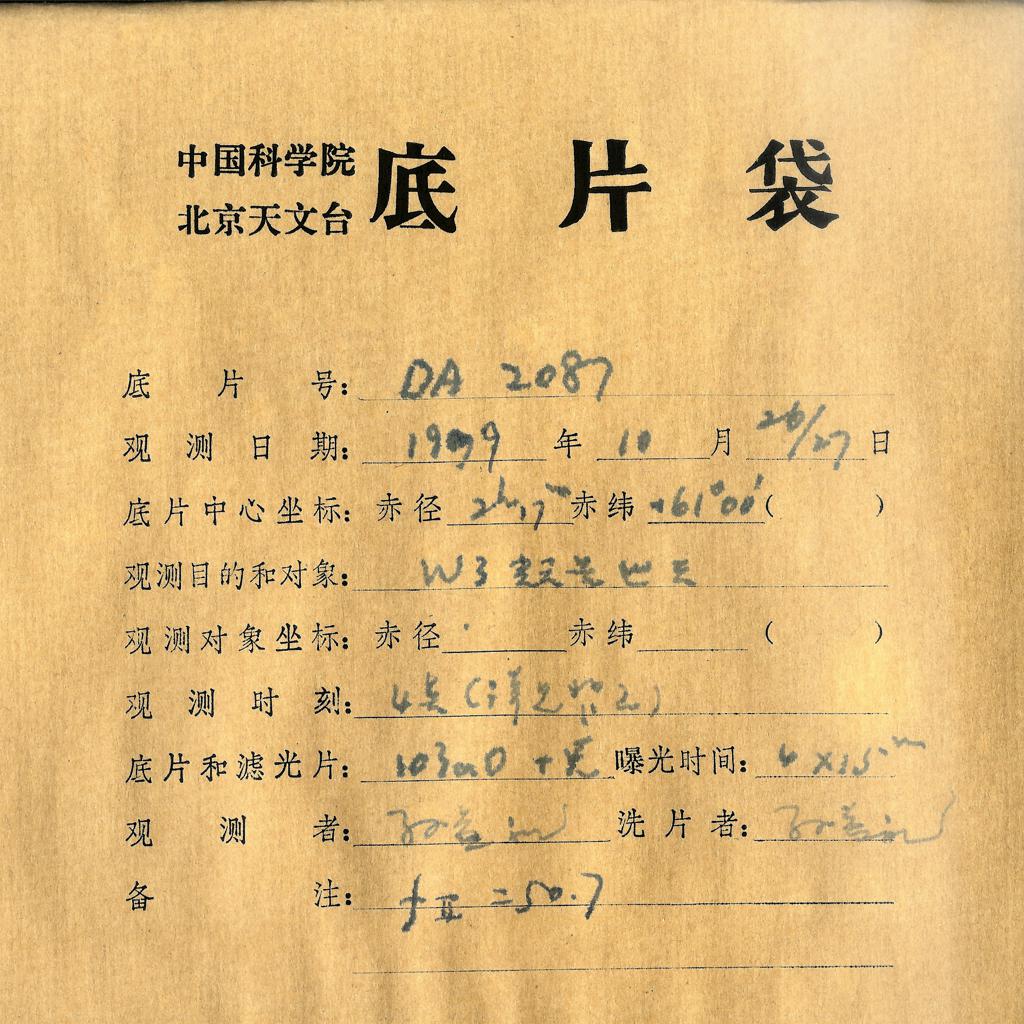 中国科学院
北京天文台
底片袋
底片号: DA 2087
观测日期: 1979年10月26/27日
底片中心坐标: 赤径 2h17m 赤纬 +61°00′( )
观测目的和对象: W3
观测对象坐标: 赤径 赤纬 ( )
观测时刻: 4
底片和滤光片: 103aO + 曝光时间: 4×15m
观测者: 洗片者:
备注: f II =50.7